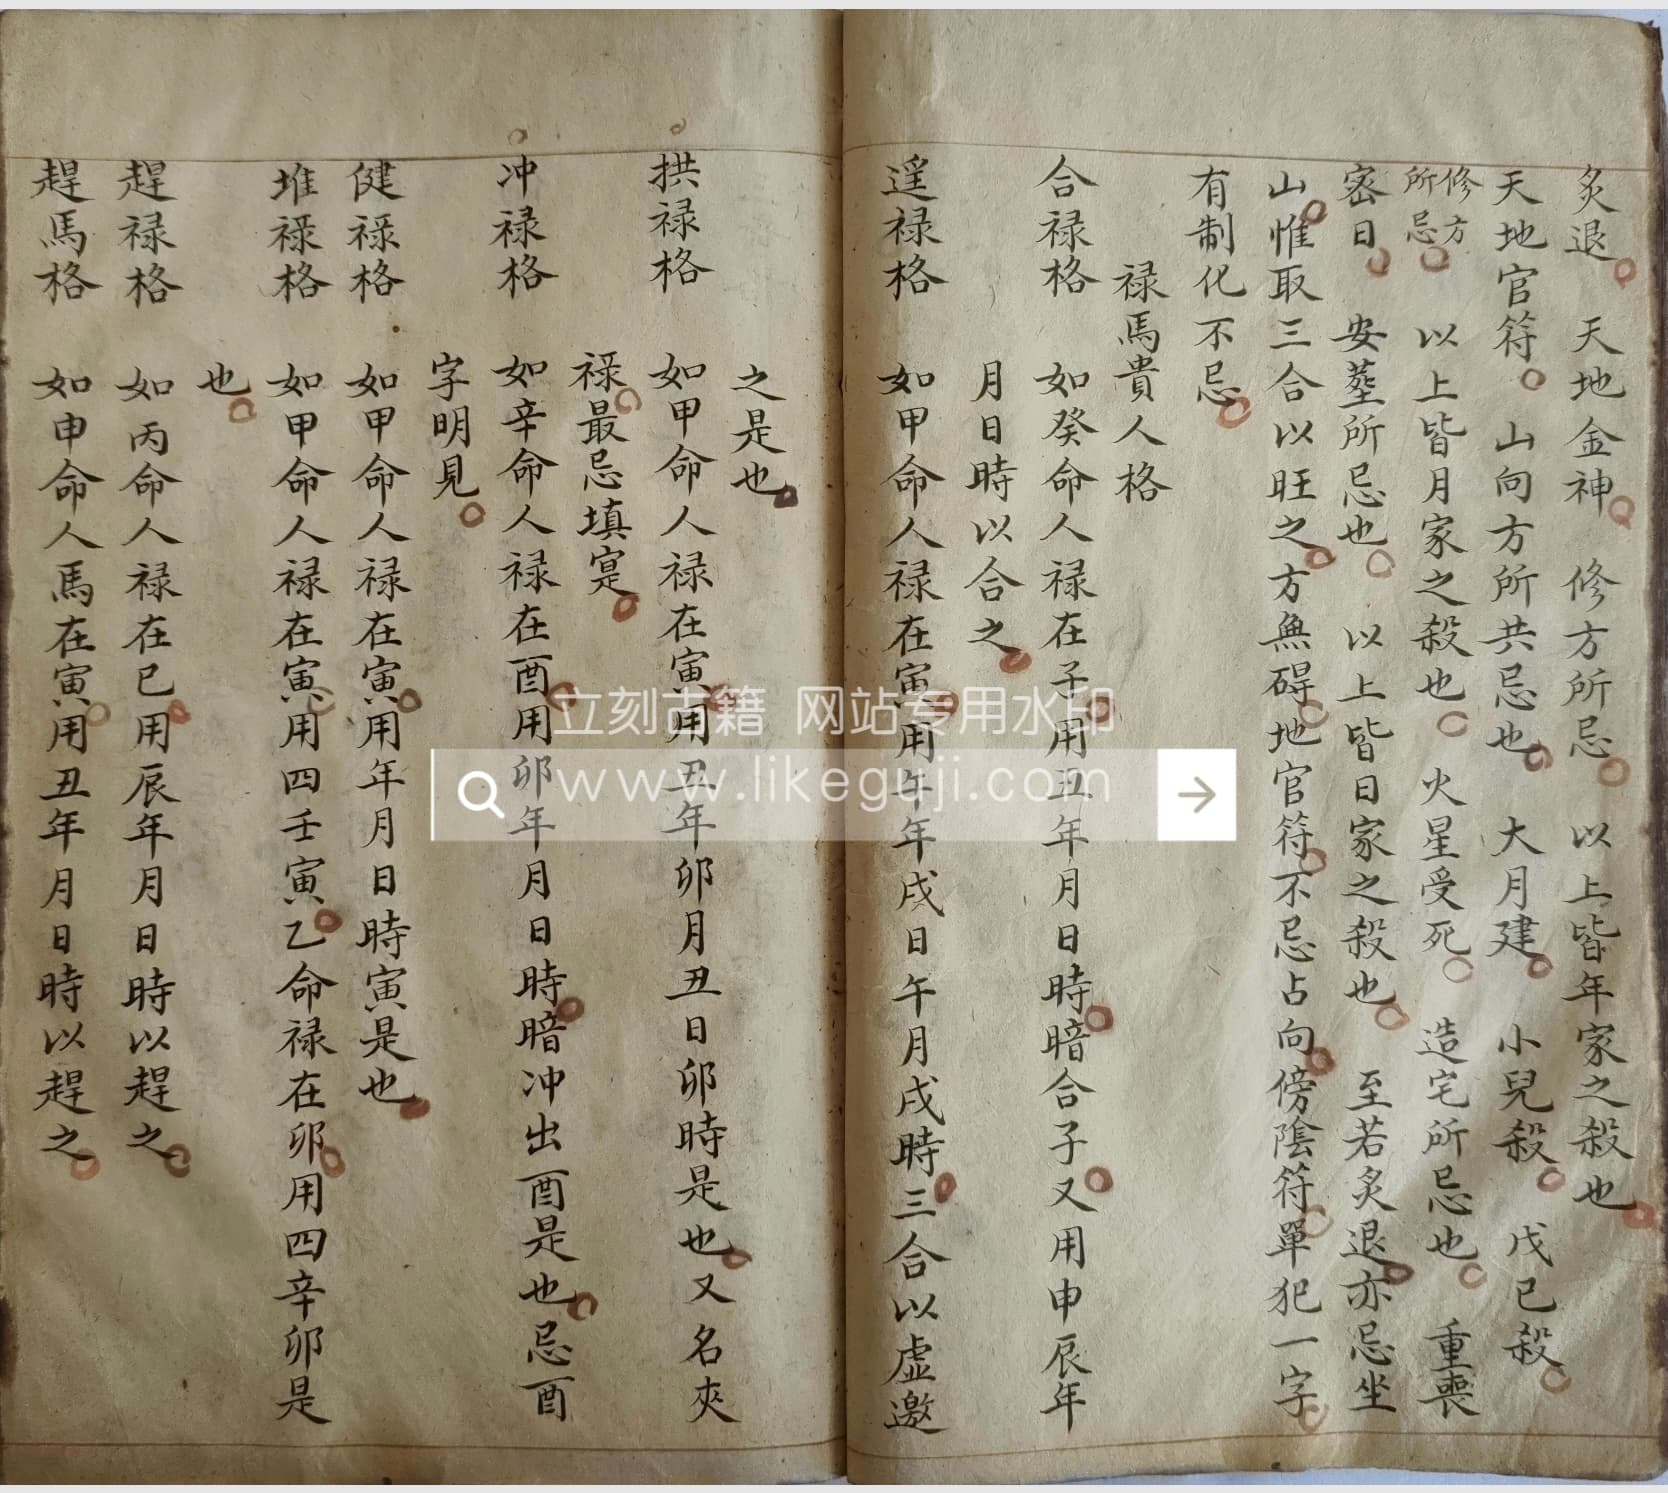 炙退　天地金神　修方所忌　以上皆年家之殺也
天地官符　山向方所共忌也　大月建　小兒殺　戊己殺
修方所忌　以上皆月家之殺也　火星受死　造宅所忌也　重喪
密日　安塟所忌也　以上皆日家之殺也　至若炙退亦忌坐
山惟取三合以旺之方無碍地官符不忌占向傍陰符單犯一字
有制化不忌
禄馬貴人格
合禄格　如癸命人禄在子用丑年月日時暗合子又用申辰年
月日時以合之
遥禄格　如甲命人禄在寅用午年戌日午月戌時三合以虛邀
之是也
拱禄格　如甲命人禄在寅用丑年卯月丑日卯時是也又名夾
禄最忌填寔
冲禄格　如辛命人禄在酉用卯年月日時暗冲出酉是也忌酉
字明見
健禄格　如甲命人禄在寅用年月日時寅是也
堆禄格　如甲命人禄在寅用四壬寅乙命禄在卯用四辛卯是
也
趕禄格　如丙命人禄在巳用辰年月日時以趕之
趕馬格　如申命人馬在寅用丑年月日時以趕之
立刻古籍 网站专用水印
www.likeguji.com